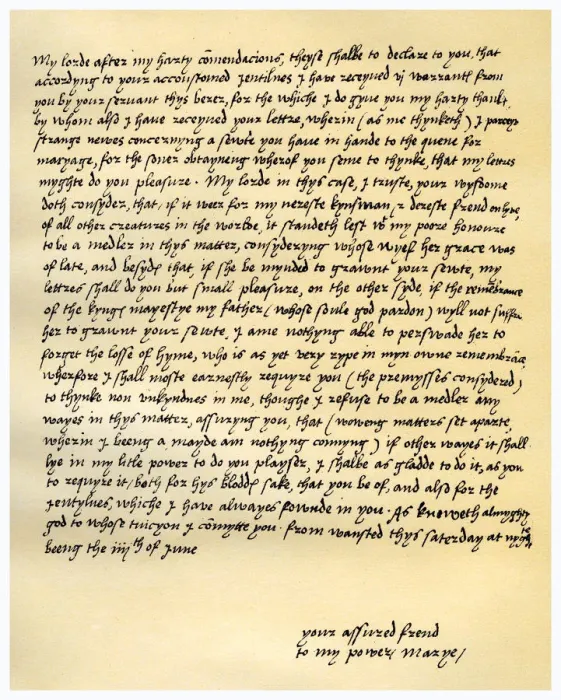 My lorde after my harty comendacions, theyse shalbe to declare to you, that
accordyng to your accoustomed jentilnes I have receyved vj warrants from
you by your servant thys berer, for the whiche I do gyve you my harty thanks,
by whom also I have receyved your lettre, wherin (as me thynketh) I perceyve
strange newes concernyng a sewte you have in hande to the quene for
maryage, for the soner obtayneng wherof you seme to thynke, that my lettres
myghte do you pleasure. My lorde in thys case, I truste, your wysdome
doth consyder, that if it weer for my nereste kynsman & dereste frend on lyve,
of all other creatures in the worlde, it standeth lest wt my poore honoure
to be a medler in thys matter, consyderyng whose wyef her grace was
of late, and besyds that, if she be mynded to grawnt your sewte, my
lettres shall do you but small pleasure, on the other syde, if the remembrance
of the kyngs mayestye my father (whose soule god pardon) wyll not suffre
her to grawnt your sewte, I ame nothyng able to perswade her to
forget the losse of hyme, who is as yet very rype in myn owne remembrance
wherfore I shall moste earnestly requyre you (the premysses consydered)
to thynke non unkyndnes in me, thoughe I refuse to be a medler any
wayes in thys matter, assuryng you, that (woweng matters set aparte,
wherin I beeng a mayde am nothyng connyng) if other wayes it shall
lye in my litle power to do you playser, I shalbe as gladde to do it, as you
to requyre it, both for hys blodds sake, that you be of, and also for the
jentylnes, whiche I have alwayes fownde in you. As knoweth almyghty
god to whose tuicyon I comytte you. From wansted thys saterday at nyght
beeng the iiijth of June
your assured frend
to my power, Marye/